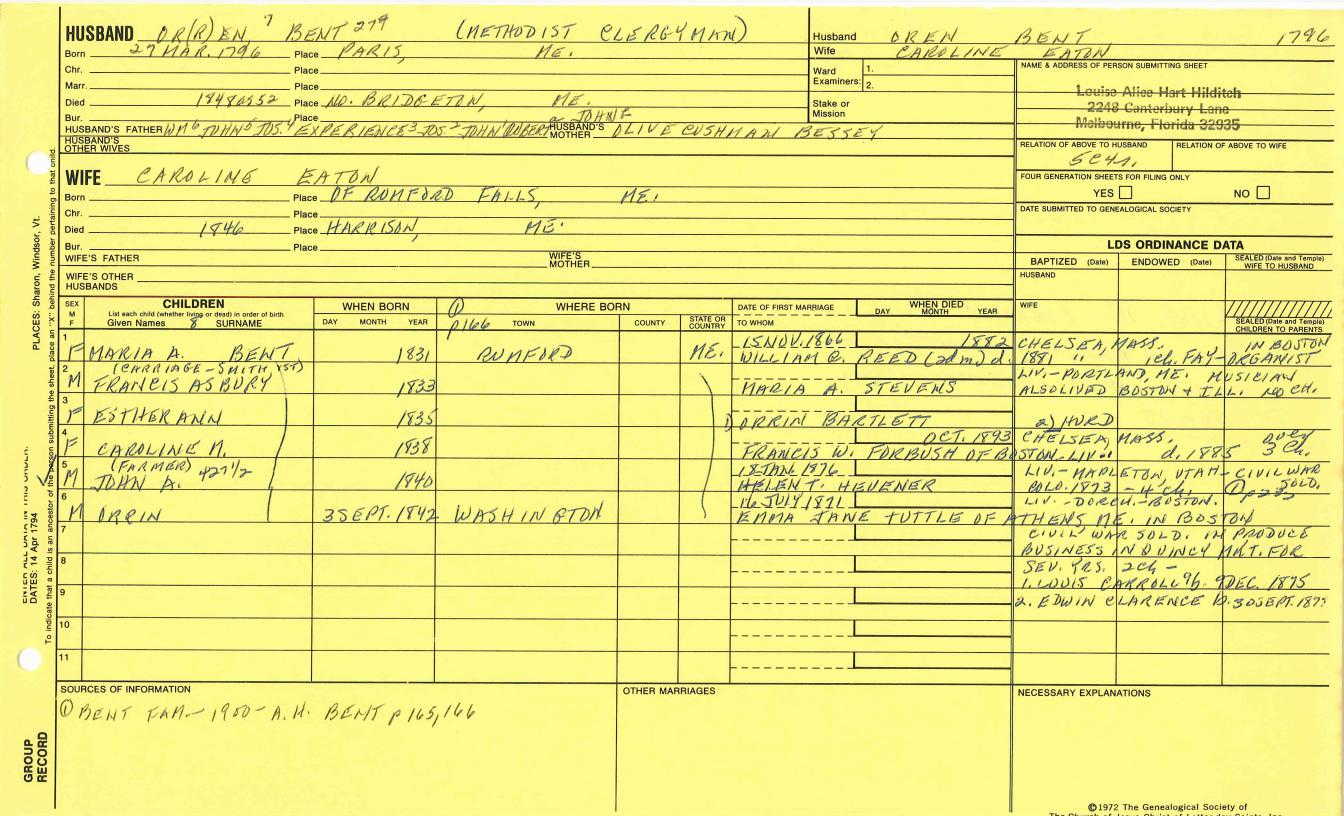 HUSBAND OR(R)EN, 7 BENT 279 (METHODIST CLERGYMAN)
Husband OREN BENT 1796
Wife CAROLINE EATON
Born 27 MAR. 1796 Place PARIS, ME.
Chr. Place
Marr. Place
Died Place NO. BRIDGETON, ME.
Bur. Place
Ward Examiners: 1.
2.
Stake or Mission
NAME & ADDRESS OF PERSON SUBMITTING SHEET
Louise Alice Hart Hilditch
2248 Canterbury Lane
Melbourne, Florida 32935
HUSBAND'S FATHER WM6 JOHN5 JOS.4 EXPERIENCE3 JOS2 JOHN
HUSBAND'S MOTHER OLIVE CUSHMAN BESSEY
HUSBAND'S OTHER WIVES
RELATION OF ABOVE TO HUSBAND
RELATION OF ABOVE TO WIFE
WIFE CAROLINE EATON
FOUR GENERATION SHEETS FOR FILING ONLY
YES NO
Born Place OF RUMFORD FALLS, ME.
Chr. Place
Died 1846 Place HARRISON, ME.
Bur. Place
DATE SUBMITTED TO GENEALOGICAL SOCIETY
WIFE'S FATHER
WIFE'S MOTHER
WIFE'S OTHER HUSBANDS
LDS ORDINANCE DATA
BAPTIZED (Date) ENDOWED (Date) SEALED (Date and Temple) WIFE TO HUSBAND
HUSBAND
WIFE
SEALED (Date and Temple) CHILDREN TO PARENTS
SEX M F
CHILDREN
List each child (whether living or dead) in order of birth
Given Names 8 SURNAME
WHEN BORN
DAY MONTH YEAR
① p166
WHERE BORN
TOWN COUNTY STATE OR COUNTRY
DATE OF FIRST MARRIAGE
TO WHOM
WHEN DIED
DAY MONTH YEAR
1 F MARIA A. BENT 1831 RUMFORD ME. 15 NOV. 1866 1882 CHELSEA, MASS. IN BOSTON
WILLIAM C. REED (2d m) d. 1881 " 1 ch. FAY-ORGANIST
2 M (CARRIAGE-SMITH, 1ST)
FRANCIS ASBURY 1833 MARIA A. STEVENS LIV.-PORTLAND, ME. MUSICIAN
ALSO LIVED BOSTON + ILL. NO CH.
3 F ESTHER ANN 1835 1) ORRIN BARTLETT 2) HURD
4 F CAROLINE M. 1838 OCT. 1893 CHELSEA, MASS. 3 Ch.
FRANCIS W. FORBUSH OF BOSTON-LIV." d. 1885
5 M (FARMER) 427½
JOHN A. 1840 18 JAN. 1876 HELEN T. HEVENER LIV.-MAPLETON, UTAH-CIVIL WAR SOLD.
COLO. 1873 - 4 Ch.
6 M ORRIN 3 SEPT. 1842 WASHINGTON 16 JULY 1871 LIV. -DORCH.-BOSTON.
EMMA JANE TUTTLE OF ATHENS, ME. IN BOSTON
7
CIVIL WAR SOLD. IN PRODUCE
BUSINESS IN QUINCY MKT. FOR
8
SEV. YRS. 2 Ch -
1. LOUIS CARROLL b. 9 DEC. 1875
9
2. EDWIN CLARENCE b. 30 SEPT.
10
11
SOURCES OF INFORMATION
① BENT FAM- 1900- A.H. BENT p165,166
OTHER MARRIAGES
NECESSARY EXPLANATIONS
GROUP RECORD
DATES: 14 Apr 1794
PLACES: Sharon, Windsor, Vt.
To indicate that a child is an ancestor of the person submitting the sheet, place an "X" behind the number pertaining to that child.
©1972 The Genealogical Society of